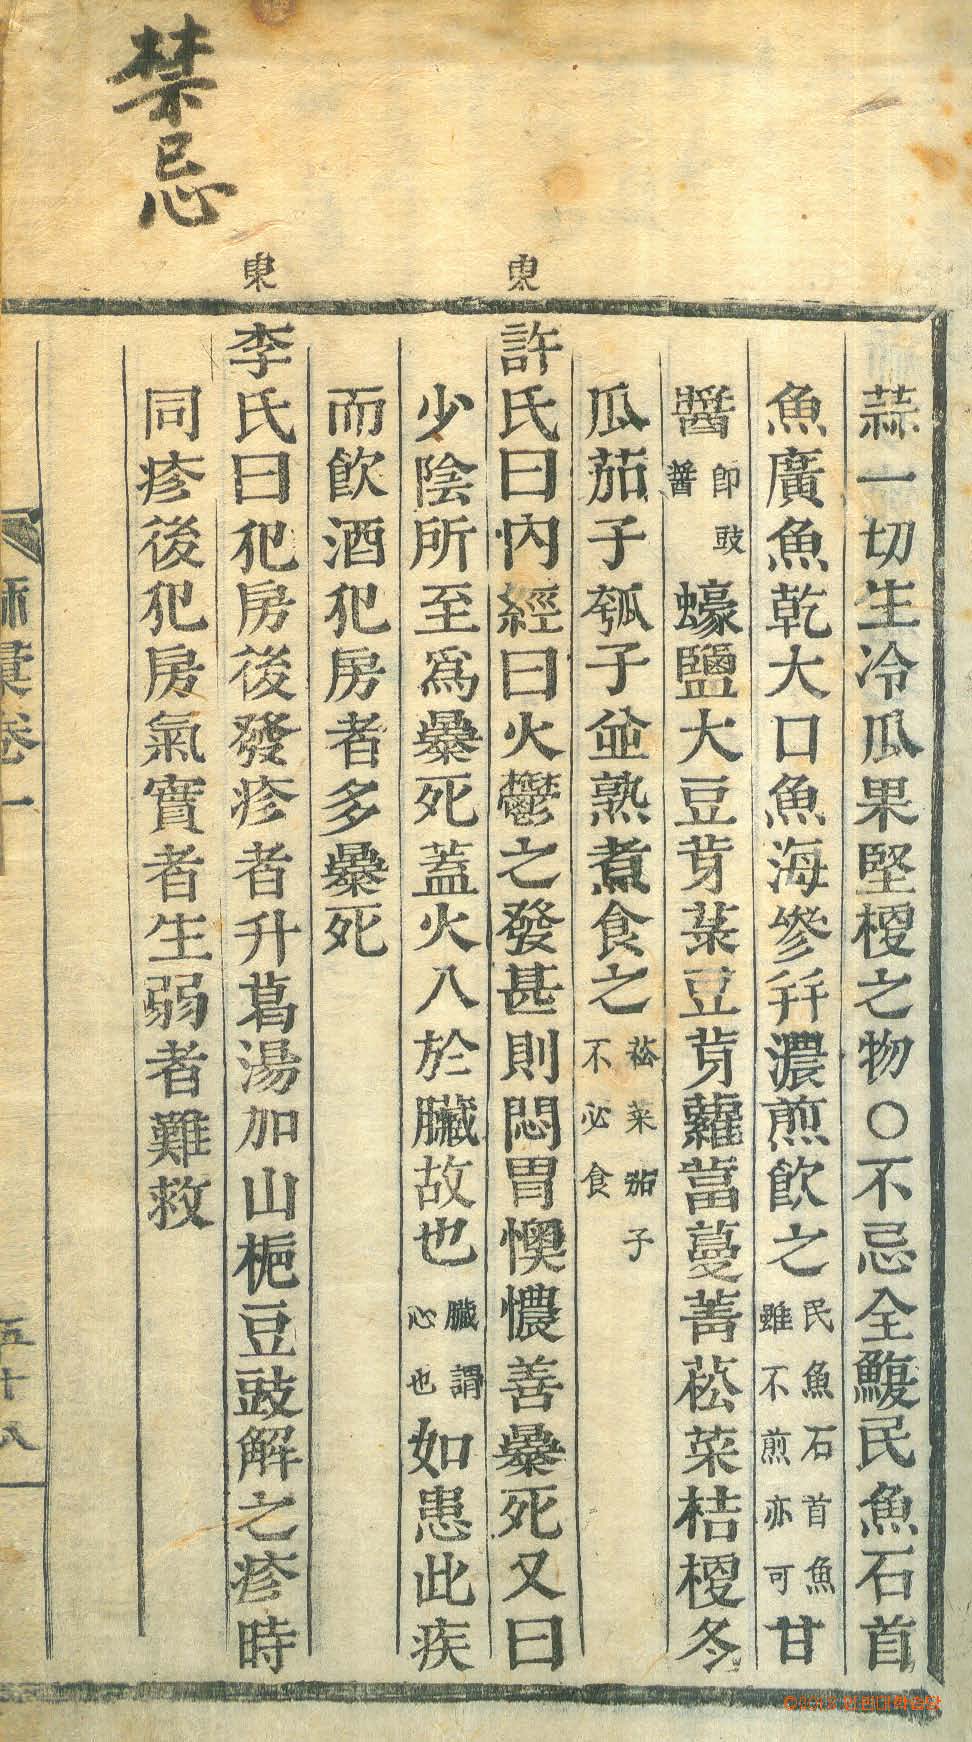 禁忌
東
東
蒜一切生冷瓜果堅梗之物○不忌全鰒民魚石首
魚廣魚乾大口魚海參幷濃煎飮之民魚石首魚雖不煎亦可甘
醬卽豉醬蠔鹽大豆芽菉豆芽蘿葍蔓菁菘菜桔梗冬
瓜茄子瓠子並熟煮食之菘菜茄子不必食
許氏曰內經曰火鬱之發甚則悶胃懊憹善暴死又曰
少陰所至爲暴死蓋火入於臟故也臟謂心也如患此疾
而飮酒犯房者多暴死
李氏曰犯房後發疹者升葛湯加山梔豆豉解之疹時
同疹後犯房氣實者生弱者難救
卷一
五十八
©2018 인민대학습당